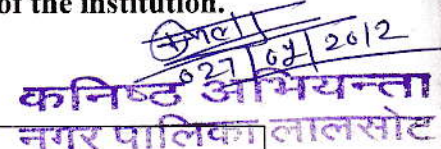 of the institution.
027/04/2012
कनिष्ठ अभियन्ता
नगर पालिका लालसोट